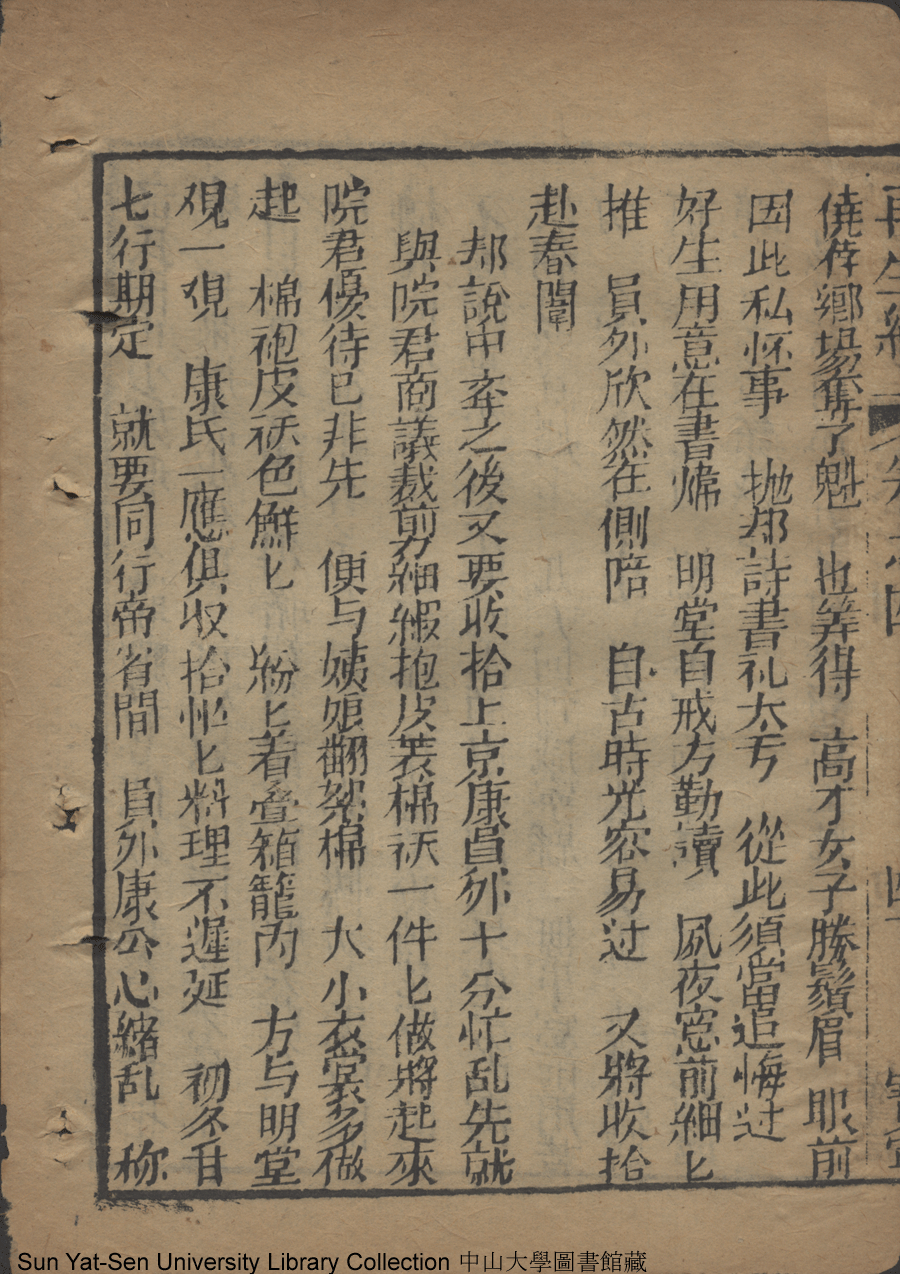 再生緣 卷之四
僥倖鄉場奪了魁 也筭得 高才女子勝鬚眉 眼前
因此私怀事 抛却詩書礼太亏 從此須當追悔过
好生用意在書幃 明堂自戒方勤讀 夙夜窓前細匕
推 員外欣然在側陪 自古時光容易过 又將收拾
赴春闈
却說中奔之後又要收拾上京康員外十分忙乱先就
與院君商議裁剪細緞袍皮裘棉袄一件匕做將起來
院君優待已非先 便与姨娘翻絮棉 大小衣裳多做
起 棉袍皮袄色鮮匕 粉匕着叠箱籠內 方与明堂
覌一覌 康氏一應俱収拾 忙匕料理不遲延 初冬廿
七行期定 就要同行帝省間 員外康公心緒乱 称
Sun Yat-Sen University Library Collection 中山大學圖書館藏